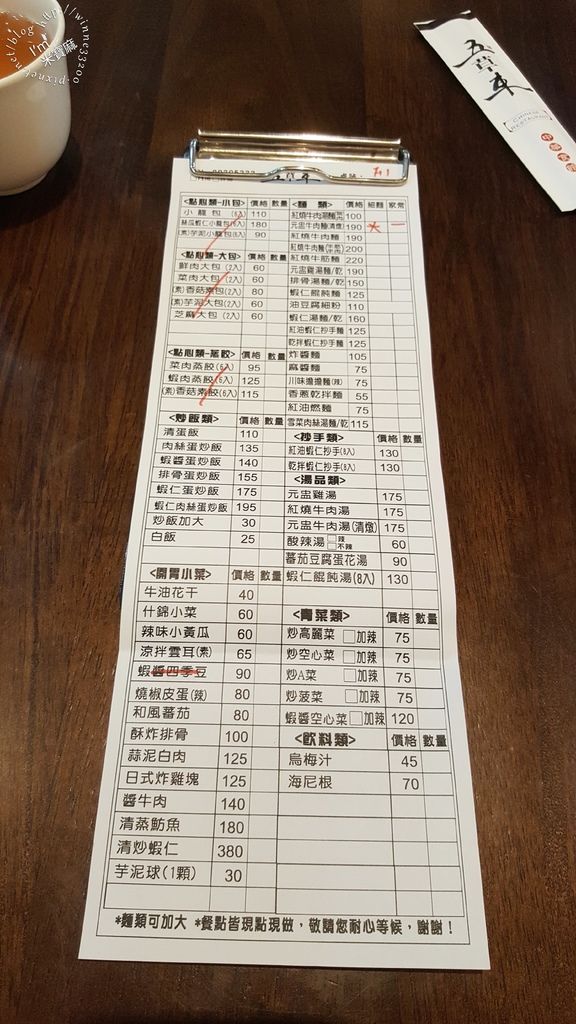 http://winne33200.pixnet.net/blog
I'm 米寶麻
五草車
CHINESE RESTAURANT
中華食館
五草車
<點心類-小包> 價格 數量
小籠包 (6入) 110
絲瓜蝦仁小籠包(6入) 180
(素)芋泥小籠包(6入) 90
<點心類-大包> 價格 數量
鮮肉大包 (2入) 60
菜肉大包 (2入) 60
(素)香菇素包(2入) 80
(素)芋泥大包(2入) 60
芝麻大包 (2入) 60
<點心類-蒸餃> 價格 數量
菜肉蒸餃(6入) 95
蝦肉蒸餃(6入) 125
(素)香菇素餃(6入) 115
<炒飯類> 價格 數量
清蛋飯 110
肉絲蛋炒飯 135
蝦醬蛋炒飯 140
排骨蛋炒飯 155
蝦仁蛋炒飯 175
蝦仁肉絲蛋炒飯 195
炒飯加大 30
白飯 25
<開胃小菜> 價格 數量
牛油花干 40
什錦小菜 60
辣味小黃瓜 60
涼拌雲耳(素) 65
蝦醬四季豆 90
燒椒皮蛋(辣) 80
和風蕃茄 80
酥炸排骨 100
蒜泥白肉 125
日式炸雞塊 125
醬牛肉 140
清蒸魴魚 180
清炒蝦仁 380
芋泥球(1顆) 30
<麵 類> 價格 細麵 家常
紅燒牛肉湯麵 100
元盅牛肉麵(清燉) 190 大 一
紅燒牛肉麵 190
紅燒牛肉麵 200
紅燒牛筋麵 220
元盅雞湯麵/乾 190
排骨湯麵/乾 150
蝦仁餛飩麵 125
油豆腐細粉 110
蝦仁湯麵/乾 160
紅油蝦仁抄手麵 125
乾拌蝦仁抄手麵 125
炸醬麵 105
麻醬麵 75
川味擔擔麵(辣) 75
香蔥乾拌麵 55
紅油燃麵 75
雪菜肉絲湯麵/乾 115
<抄手類> 價格 數量
紅油蝦仁抄手(8入) 130
乾拌蝦仁抄手(8入) 130
<湯品類>
元盅雞湯 175
紅燒牛肉湯 175
元盅牛肉湯(清燉) 175
酸辣湯 □辣 □不辣 60
蕃茄豆腐蛋花湯 90
蝦仁餛飩湯(8入) 130
<青菜類> 價格 數量
炒高麗菜 □加辣 75
炒空心菜 □加辣 75
炒A菜 □加辣 75
炒菠菜 □加辣 75
蝦醬空心菜 □加辣 120
<飲料類> 價格 數量
烏梅汁 45
海尼根 70
*麵類可加大 *餐點皆現點現做，敬請您耐心等候，謝謝！